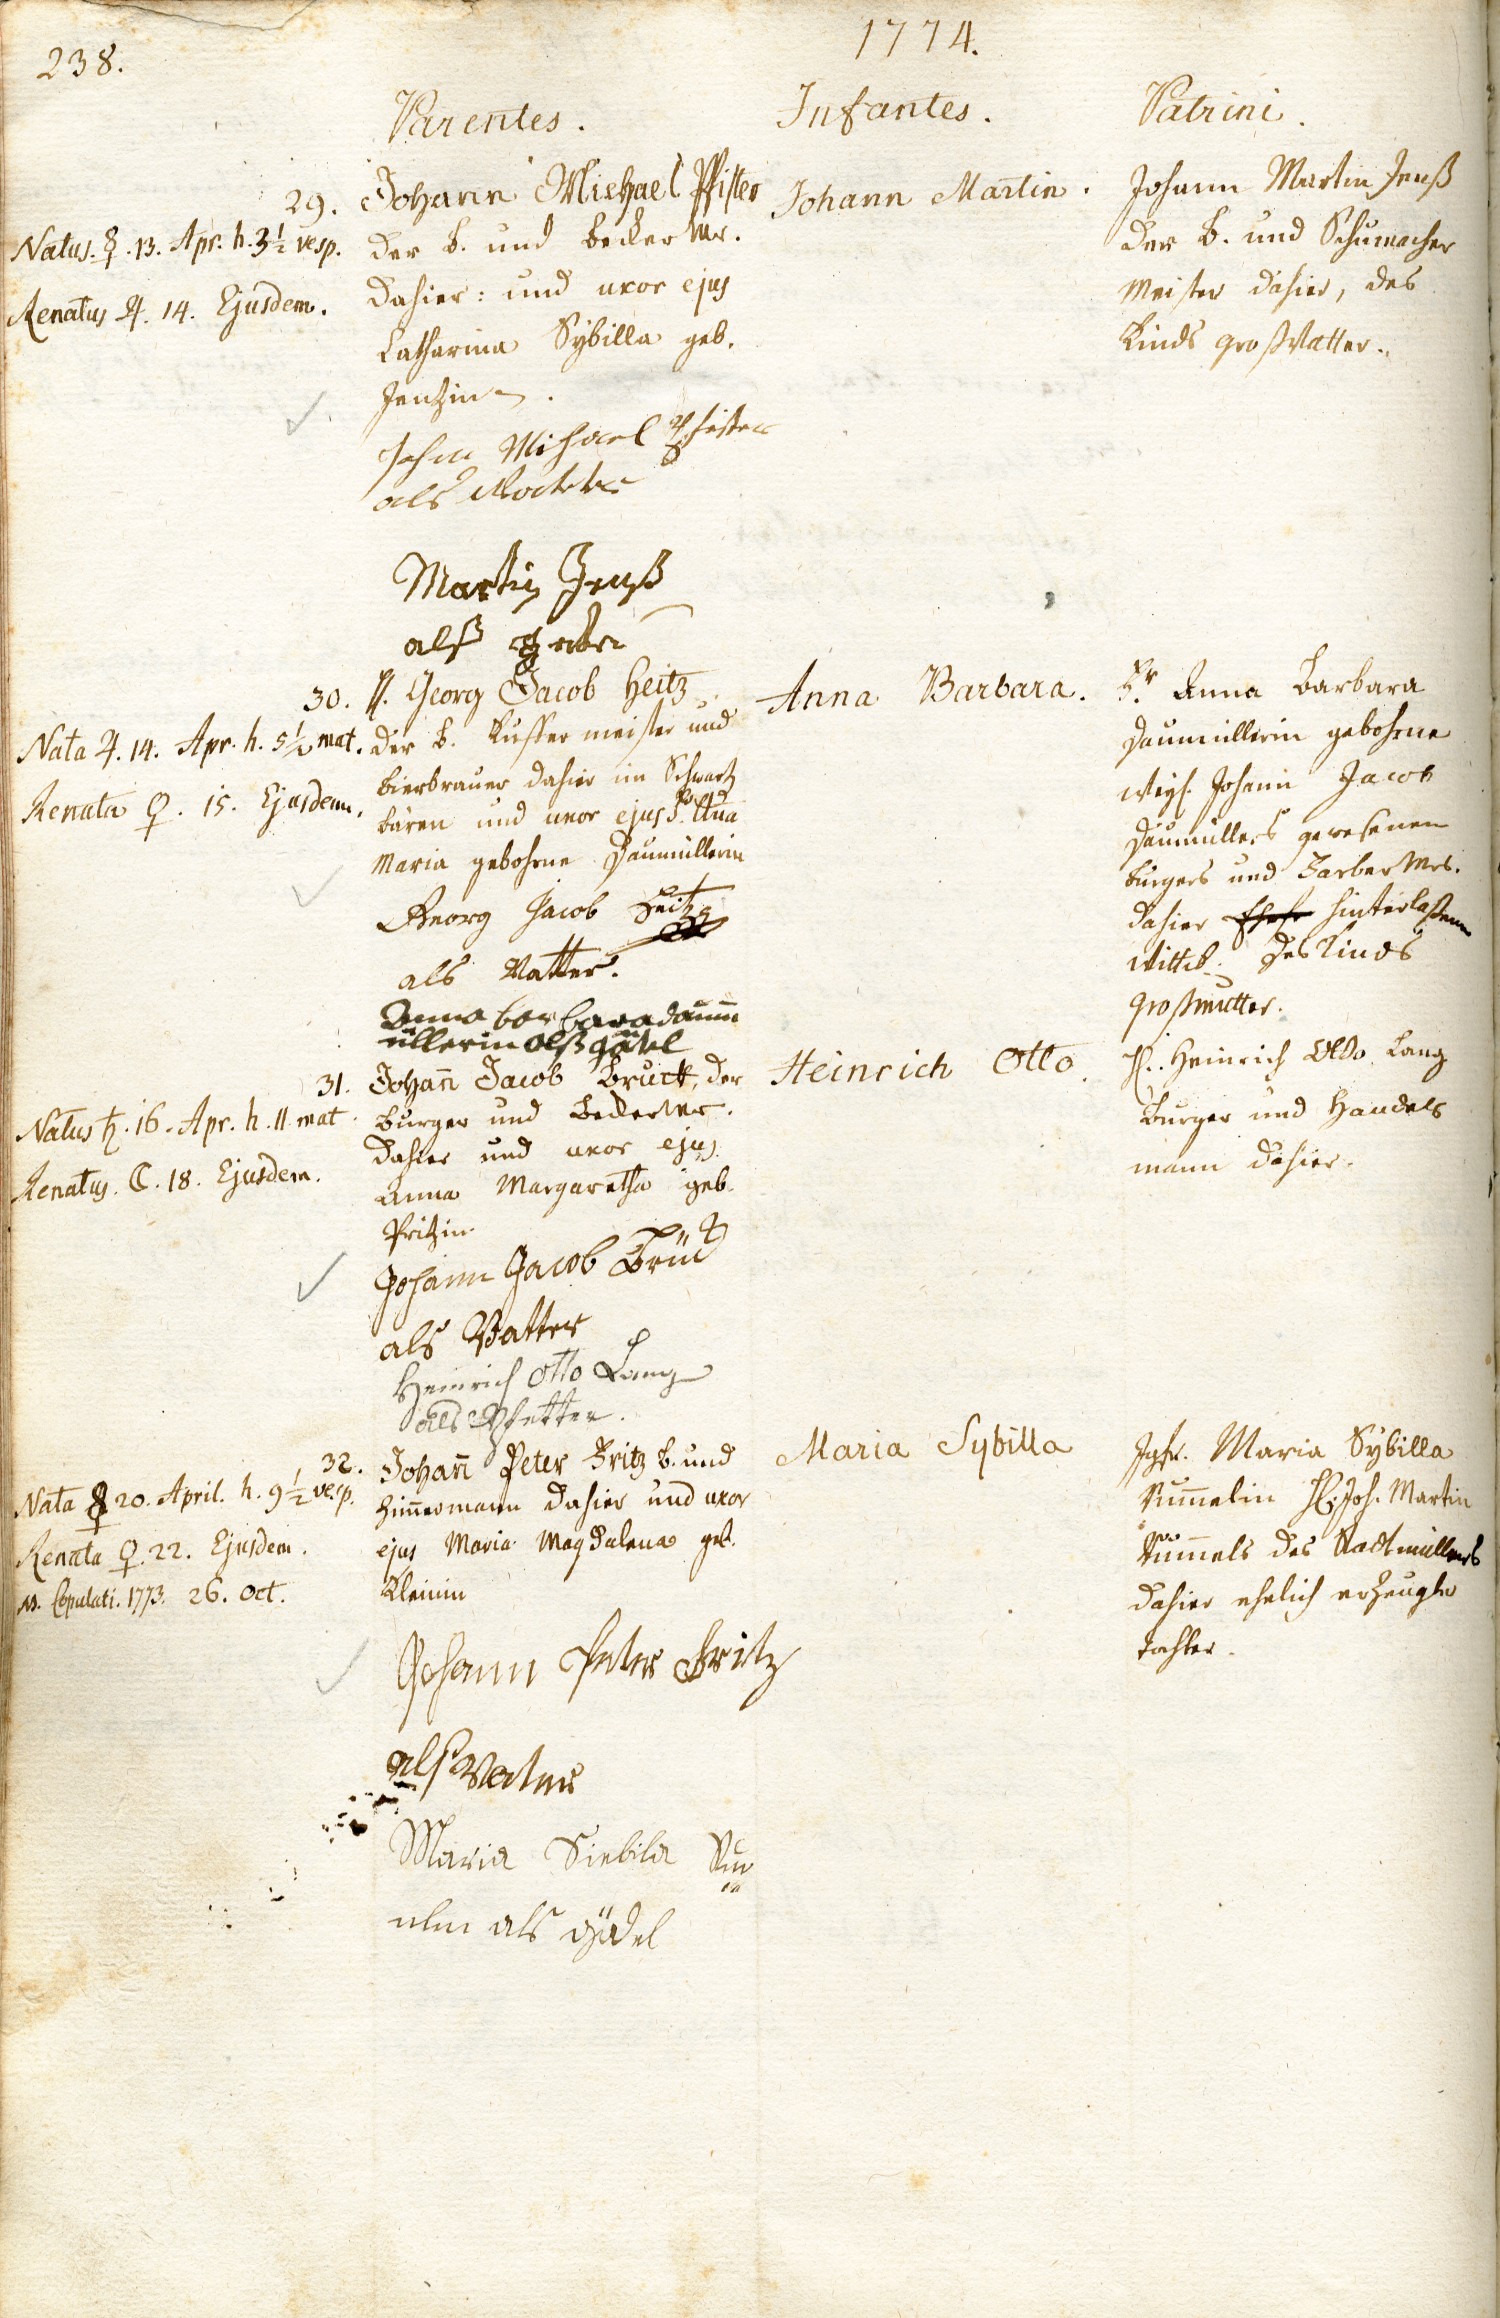 238.
1774.
Parentes. Infantes. Patrini.
29.
Natus. ☿. 13. Apr. h. 3½ vesp.
Renatus ♃. 14. Ejusdem.
Johann Michael Pfister
der B. und Becker Mr.
dahier: und uxor ejus
Catharina Sybilla geb.
Jentzin.
Johann Michael Pfister
als Vatter
Martin Jentz
alß
Johann Martin.
Johann Martin Jenß
der B. und Schumacher
Meister dahier, des
Kinds großvatter.
30.
Nata ♃. 14. Apr. h. 5½ mat.
Renata ♀. 15. Ejusdem.
H. Georg Jacob Heitz
der B. Kieffer meister und
bierbrauer dahier im Schwartz
bären und uxor ejus Fr. Anna
Maria gebohrne Daumüllerin
Georg Jacob Heitz
als Vatter.
Anna barbara daum
üllerin alß gödel
Anna Barbara.
Fr. Anna Barbara
Daumüllerin gebohrne
weyl. Johann Jacob
Daumüllers gewesenen
burgers und Färber Mrs.
dahier hinterlaßene
Wittib. des Kinds
großmutter.
31.
Natus ♄. 16. Apr. h. 11. mat.
Renatus. ☾. 18. Ejusdem.
Johann̄ Jacob Bruck, der
burger und Becker Mr.
dahier und uxor ejus
Anna Margaretha geb.
Fritzin.
Johann Jacob Brück
als Vatter
Heinrich Otto Lang
als Pfetter.
Heinrich Otto.
H. Heinrich Otto Lang
Burger und Handels
mann dahier.
32.
Nata ☿ 20. April. h. 9½ vesp.
Renata ♀. 22. Ejusdem.
NB. Copulati. 1773. 26. Oct.
Johan̄ Peter Fritz B. und
Zim̄ermann dahier und uxor
ejus Maria Magdalena geb.
Kleinin
Johann Peter Fritz
alß Vater
Maria Siebila Rum̄
elin als gödel
Maria Sybilla
Jgfr. Maria Sybilla
Rum̄elin H. Joh. Martin
Rum̄els des Stadtmüllers
dahier ehelich erzeugte
Tochter.